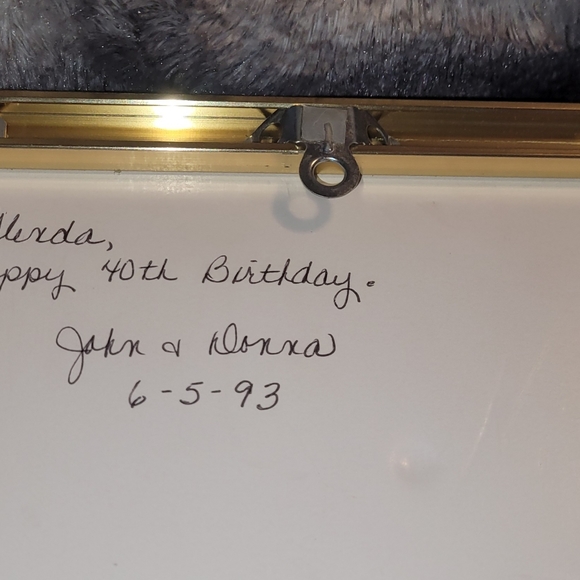 ppy 40th Birthday.
John & Donna
6-5-93